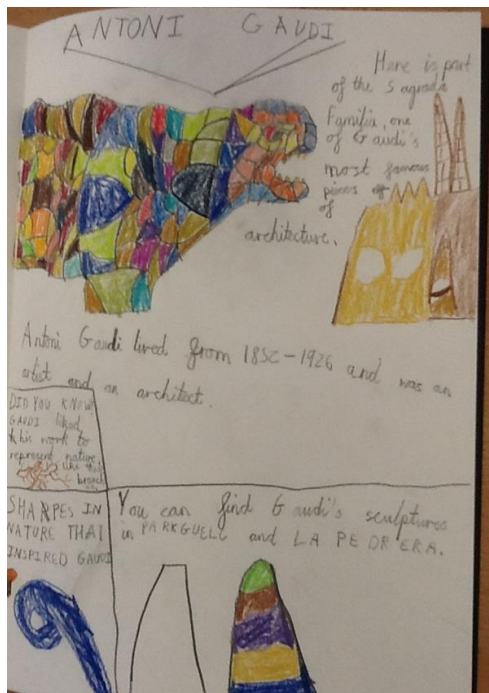 ANTONI GAUDI
Here is part
of the Sagrada
Familia, one
of Gaudi's
most famous
pieces of
of
architecture.
Antoni Gaudi lived from 1852-1926 and was an
artist and an architect.
DID YOU KNOW
GAUDI liked
his work to
represent nature,
like this
branch
SHARPES IN
NATURE THAT
INSPIRED GAUDI
You can find Gaudi's sculptures
in PARKGUELL and LA PEDRERA.